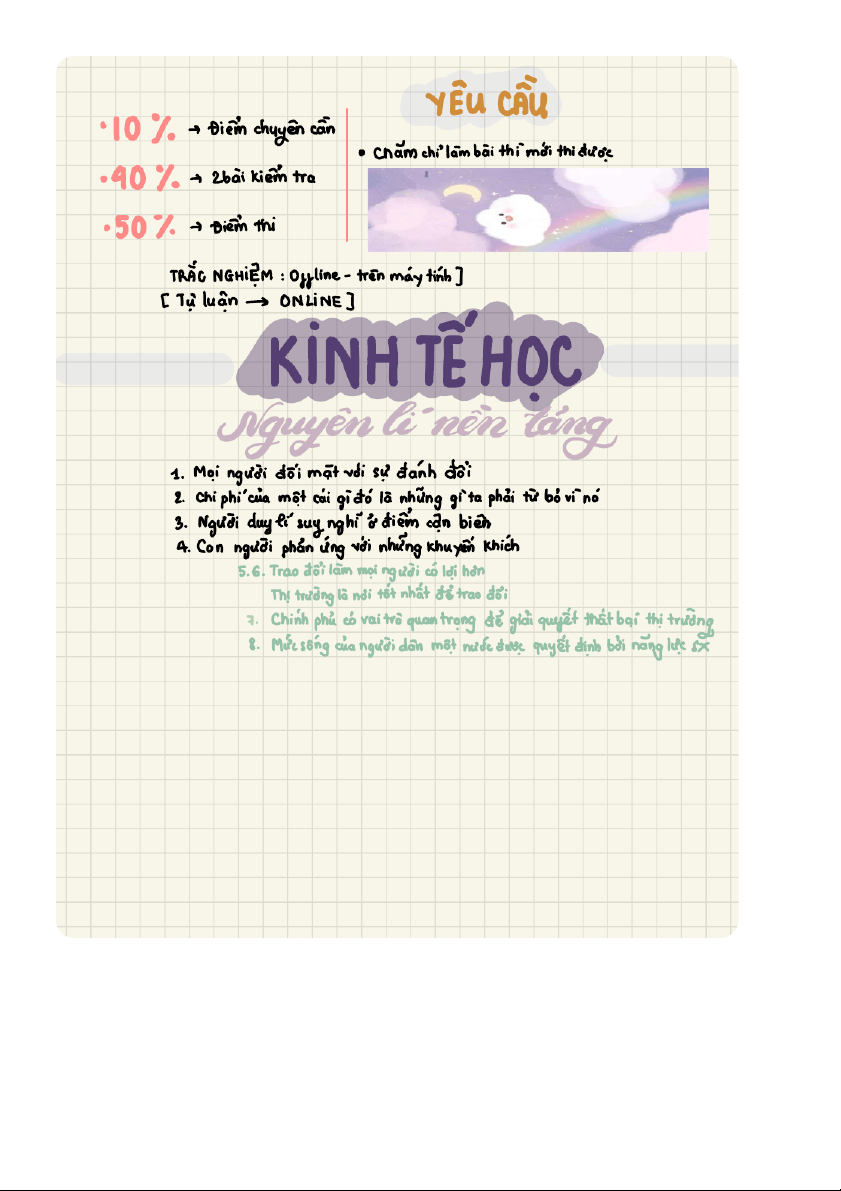 YÊU CẦU
• 10 % → Điểm chuyên cần
• 40 % → 2 bài kiểm tra
• 50 % → Điểm thi
• Chăm chỉ làm bài thì mới thi được
TRẮC NGHIỆM : Offline - trên máy tính ]
[ Tự luận → ONLINE ]
KINH TẾ HỌC
Nguyên lí nền tảng
1. Mọi người đối mặt với sự đánh đổi
2. Chi phí của một cái gì đó là những gì ta phải từ bỏ vì nó
3. Người duy lí suy nghĩ ở điểm cận biên
4. Con người phản ứng với những khuyến khích
5.6. Trao đổi làm mọi người có lợi hơn
Thị trường là nơi tốt nhất để trao đổi
7. Chính phủ có vai trò quan trọng để giải quyết thất bại thị trường
8. Mức sống của người dân một nước được quyết định bởi năng lực sx